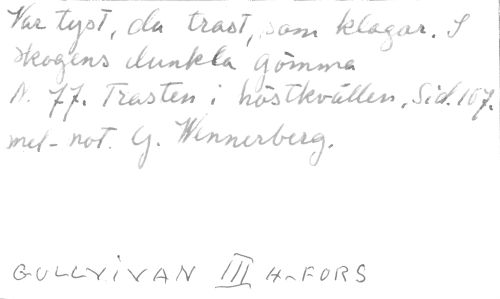 Var tyst, du trast, som klagar. I
skogens dunkla gömma
N. 77. Trasten i höstkvällen, Sid. 107.
mel-not. G. Wennerberg.
GULLVIVAN III H-FORS